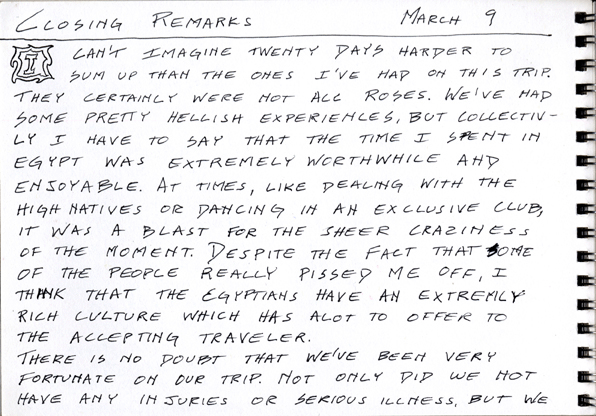 CLOSING REMARKS MARCH 9
I CAN'T IMAGINE TWENTY DAYS HARDER TO
SUM UP THAN THE ONES I'VE HAD ON THIS TRIP.
THEY CERTAINLY WERE NOT ALL ROSES. WE'VE HAD
SOME PRETTY HELLISH EXPERIENCES, BUT COLLECTIV-
LY I HAVE TO SAY THAT THE TIME I SPENT IN
EGYPT WAS EXTREMELY WORTHWHILE AND
ENJOYABLE. AT TIMES, LIKE DEALING WITH THE
HIGH NATIVES OR DANCING IN AN EXCLUSIVE CLUB,
IT WAS A BLAST FOR THE SHEER CRAZINESS
OF THE MOMENT. DESPITE THE FACT THAT SOME
OF THE PEOPLE REALLY PISSED ME OFF, I
THINK THAT THE EGYPTIANS HAVE AN EXTREMLY
RICH CULTURE WHICH HAS ALOT TO OFFER TO
THE ACCEPTING TRAVELER.
THERE IS NO DOUBT THAT WE'VE BEEN VERY
FORTUNATE ON OUR TRIP. NOT ONLY DID WE NOT
HAVE ANY INJURIES OR SERIOUS ILLNESS, BUT WE